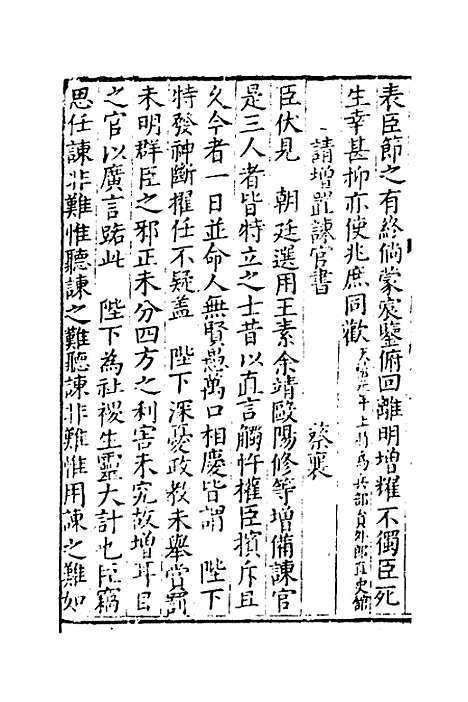 表臣節之有終倘蒙宸鑒俯回離明增耀不獨臣死
生幸甚抑亦使兆庶同歡天禧元年上時為兵部員外郎直史館
請增置諫官書 蔡襄
臣伏見 朝廷選用王素余靖歐陽修等增備諫官
是三人者皆特立之士昔以直言觸忤權臣擯斥且
久今者一日並命人無賢愚萬口相慶皆謂 陛下
特發神斷擢任不疑蓋 陛下深憂政教未舉賞罰
未明群臣之邪正未分四方之利害未究故增耳目
之官以廣言路此 陛下為社稷生靈大計也臣竊
思任諫非難惟聽諫之難聽諫非難惟用諫之難如